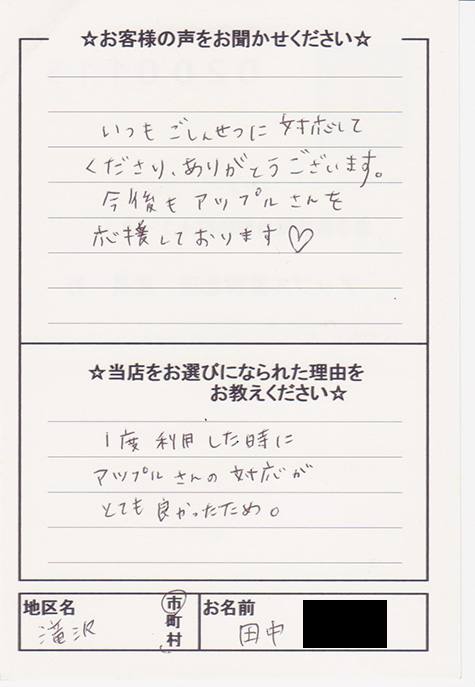 ☆お客様の声をお聞かせください☆
いつもごしんせつに対応して
くださり、ありがとうございます。
今後もアップルさんを
応援しております♡
☆当店をお選びになられた理由を
お教えください☆
1度利用した時に
アップルさんの対応が
とても良かったため。
地区名
滝沢
市
町
村
お名前
田中